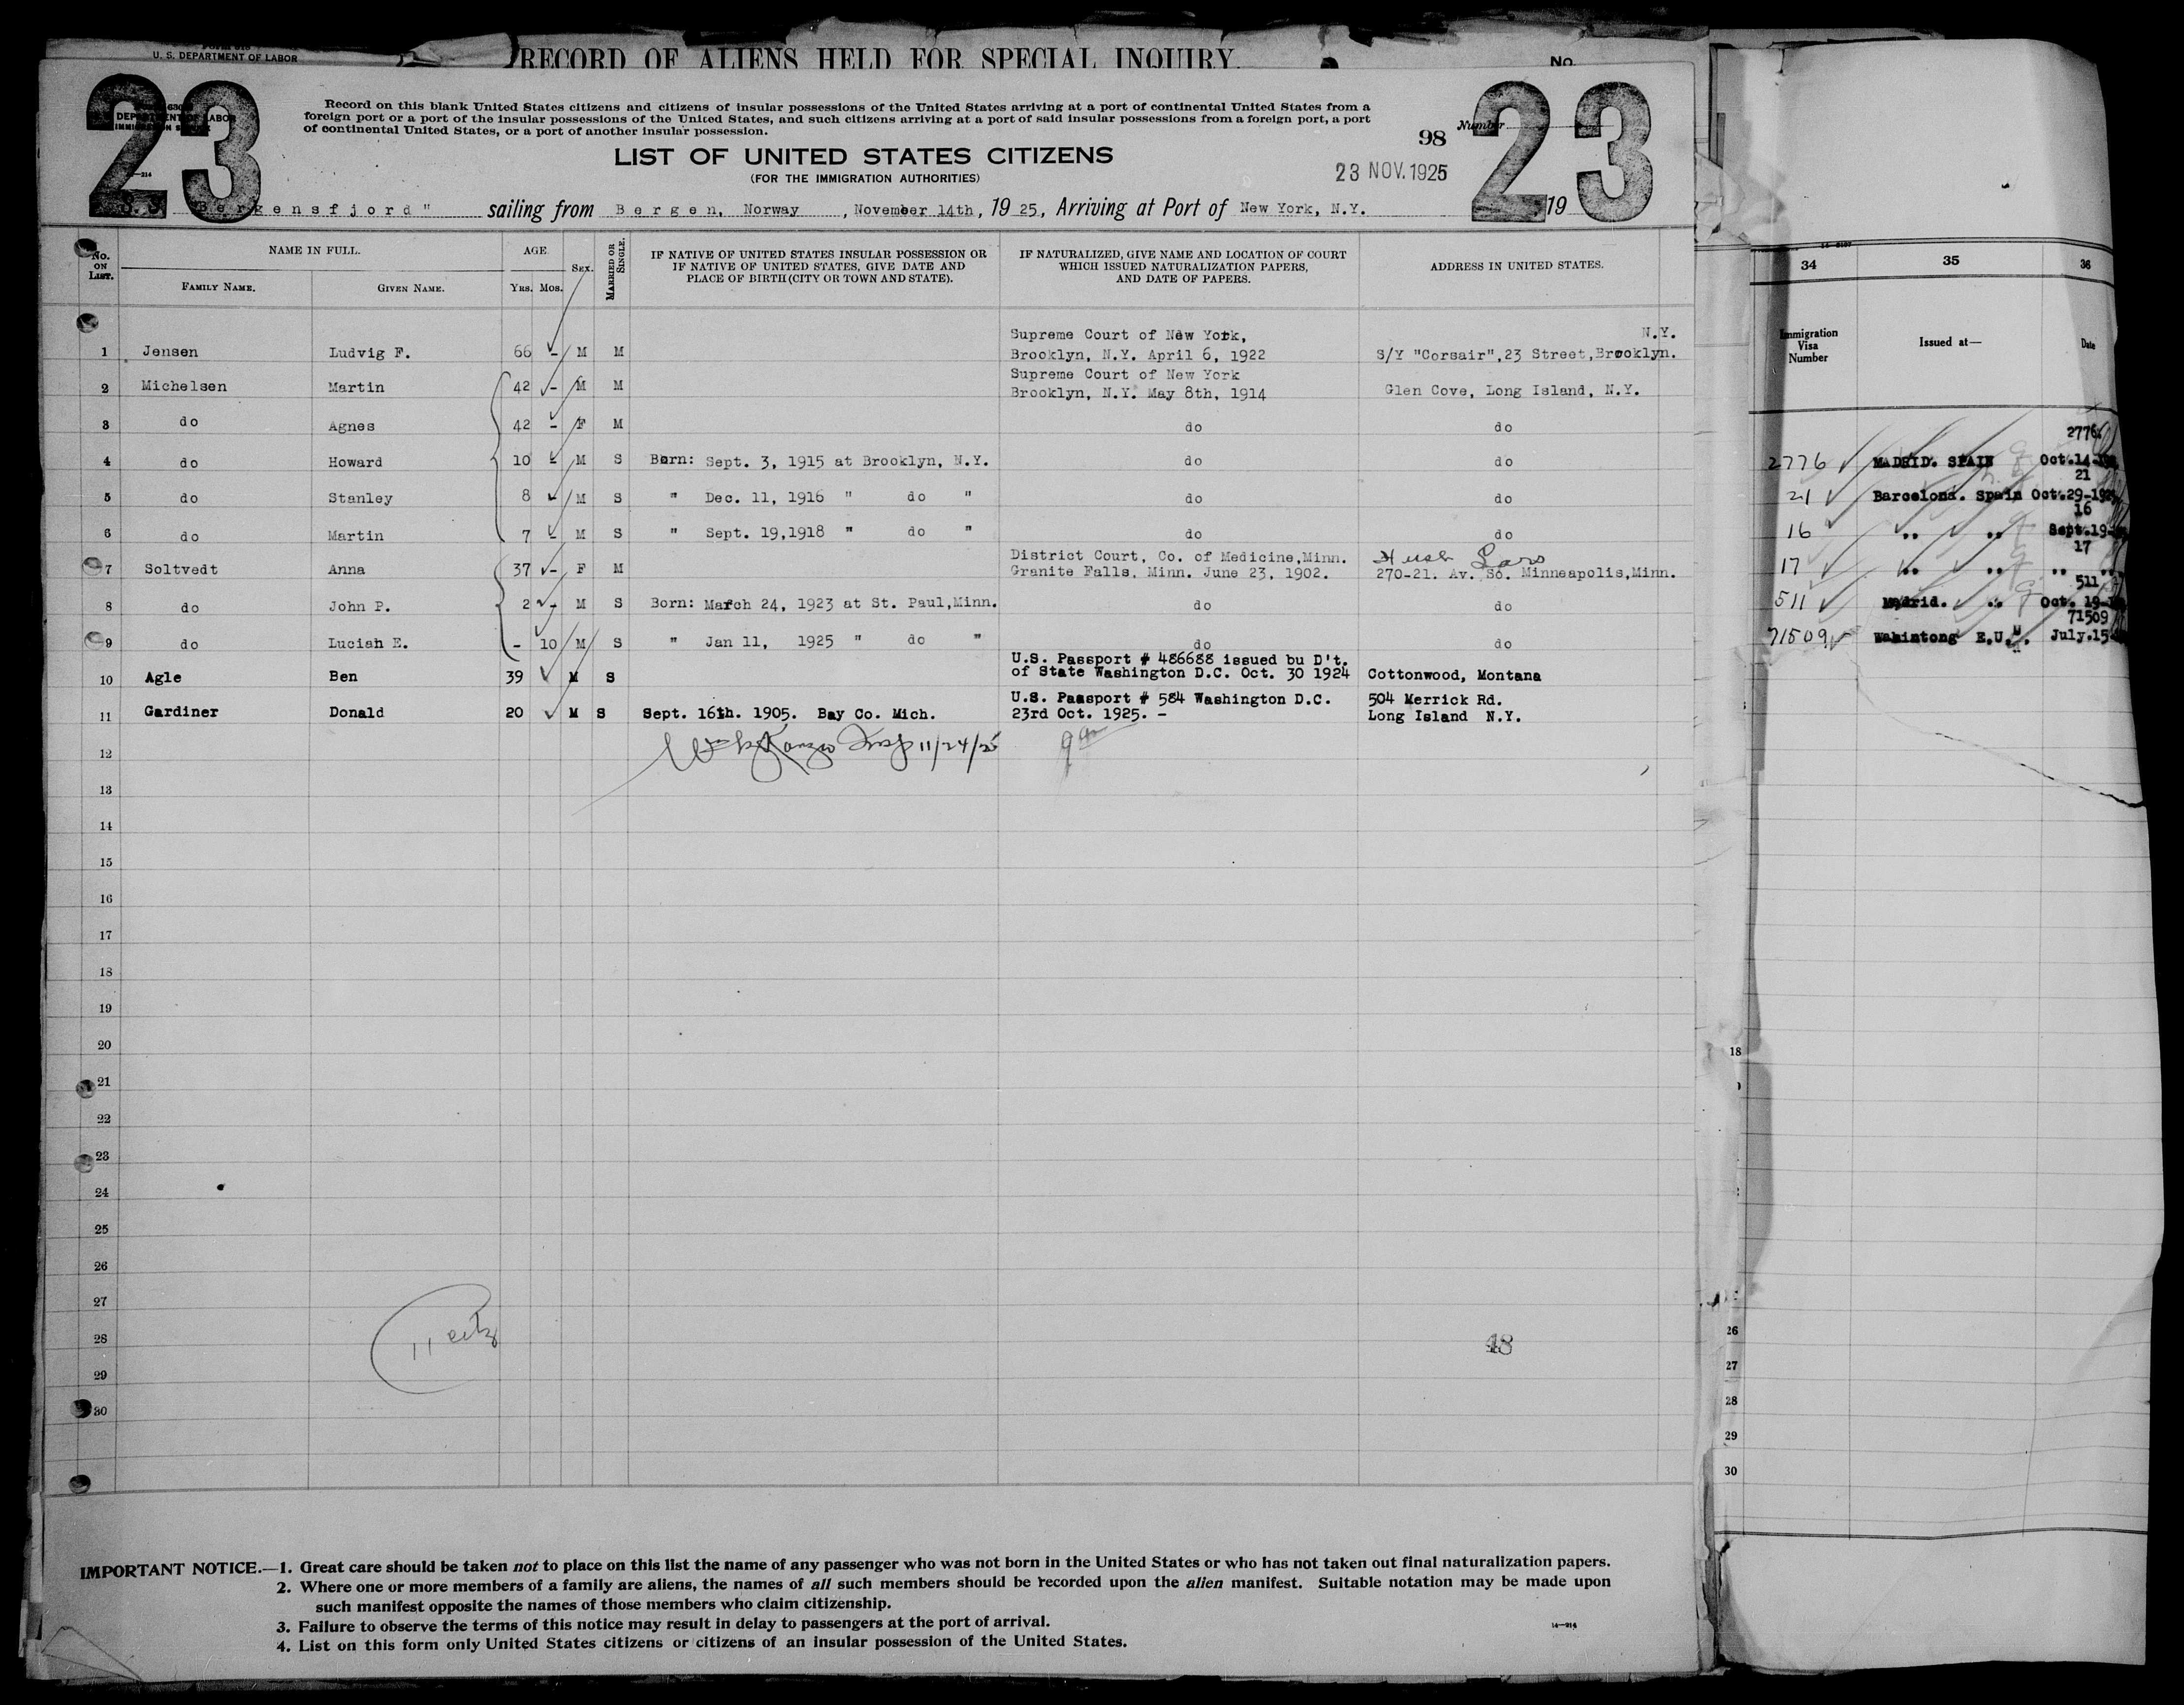 U. S. DEPARTMENT OF LABOR
RECORD OF ALIENS HELD FOR SPECIAL INQUIRY.
No.
23
23
Record on this blank United States citizens and citizens of insular possessions of the United States arriving at a port of continental United States from a
foreign port or a port of the insular possessions of the United States, and such citizens arriving at a port of said insular possessions from a foreign port, a port
of continental United States, or a port of another insular possession.
Number
98
LIST OF UNITED STATES CITIZENS
(FOR THE IMMIGRATION AUTHORITIES)
23 NOV. 1925
S.S. "Bergensfjord" sailing from Bergen, Norway, November 14th, 1925, Arriving at Port of New York, N.Y. 19
No. ON LIST. NAME IN FULL. AGE. SEX. MARRIED OR SINGLE. IF NATIVE OF UNITED STATES INSULAR POSSESSION OR IF NATIVE OF UNITED STATES, GIVE DATE AND PLACE OF BIRTH (CITY OR TOWN AND STATE). IF NATURALIZED, GIVE NAME AND LOCATION OF COURT WHICH ISSUED NATURALIZATION PAPERS, AND DATE OF PAPERS. ADDRESS IN UNITED STATES.
FAMILY NAME. GIVEN NAME. YRS. MOS.
Supreme Court of New York, N.Y.
1 Jensen Ludvig F. 66 - M M Brooklyn, N.Y. April 6, 1922 S/Y "Corsair", 23 Street, Brooklyn.
Supreme Court of New York
2 Michelsen Martin 42 - M M Brooklyn, N.Y. May 8th, 1914 Glen Cove, Long Island, N.Y.
3 do Agnes 42 - F M do do
4 do Howard 10 - M S Born: Sept. 3, 1915 at Brooklyn, N.Y. do do
5 do Stanley 8 - M S " Dec. 11, 1916 " do " do do
6 do Martin 7 - M S " Sept. 19, 1918 " do " do do
District Court, Co. of Medicine, Minn.
7 Soltvedt Anna 37 - F M Granite Falls, Minn. June 23, 1902. 270-21. Av. So. Minneapolis, Minn.
8 do John P. 2 - M S Born: March 24, 1923 at St. Paul, Minn. do do
9 do Lucian E. - 10 M S " Jan 11, 1925 " do " do do
U.S. Passport # 486688 issued bu D't.
10 Agle Ben 39 M S of State Washington D.C. Oct. 30 1924 Cottonwood, Montana
U.S. Passport # 584 Washington D.C. 504 Merrick Rd.
11 Gardiner Donald 20 M S Sept. 16th. 1905. Bay Co. Mich. 23rd Oct. 1925. - Long Island N.Y.
11/24/25
12
13
14
15
16
17
18
19
20
21
22
23
24
25
26
27
28
29
30
11 citz
48
IMPORTANT NOTICE.—1. Great care should be taken not to place on this list the name of any passenger who was not born in the United States or who has not taken out final naturalization papers.
2. Where one or more members of a family are aliens, the names of all such members should be recorded upon the alien manifest. Suitable notation may be made upon
such manifest opposite the names of those members who claim citizenship.
3. Failure to observe the terms of this notice may result in delay to passengers at the port of arrival.
4. List on this form only United States citizens or citizens of an insular possession of the United States.
14—914
34 35 36
Immigration Visa Number Issued at— Date
2776
2776 MADRID. SPAIN Oct.14
21
21 Barcelona. Spain Oct.29-192
16
16 .. .. Sept.19
17
17 .. .. ..
511
511 Madrid. .. Oct. 19
71509
71509 Wahintong E.U. July.15
18
26
27
28
29
30